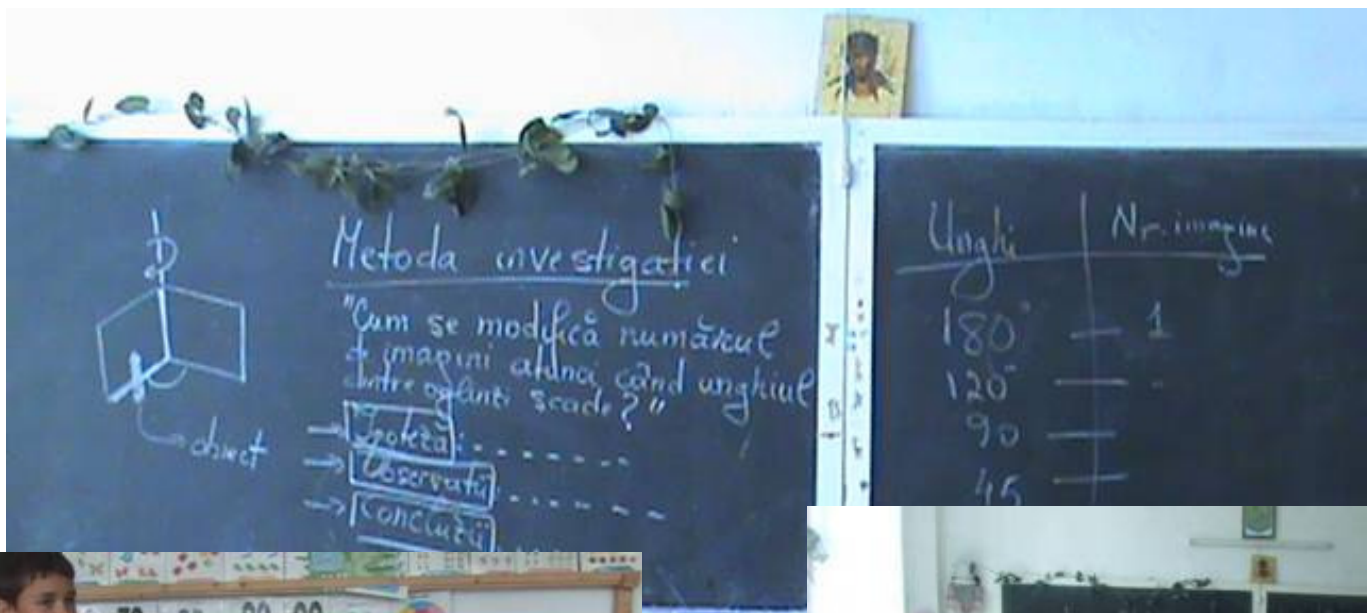 Metoda investigatiei
"Cum se modifică numărul
de imagini atunci când unghiul
dintre oglinzi scade?"
→ Ipoteză: . . . . . . .
→ Observatii: . . . . . . .
→ Concluzii
obiect
Unghi Nr. imagini
180° — 1
120° —
90 —
45 —